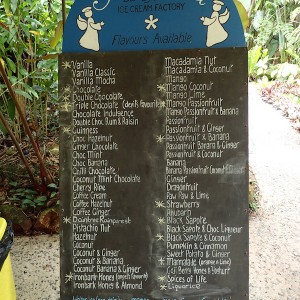 ICE CREAM FACTORY
Flavours Available
Vanilla
Vanilla Classic
Vanilla Mocha
Chocolate
Double Chocolate
Triple Chocolate (devil's favourite)
Chocolate Indulgence
Double Choc, Rum & Raisin
Guinness
Choc Hazelnut
Choc Ginger
Choc Mint
Choc Banana
Chilli Chocolate
Coconut Mint Chocolate
Cherry Ripe
Coffee Cream
Coffee Kahlua
Coffee Hazelnut
Coffee Ginger
Daintree Rainforest
Pistachio Nut
Hazelnut
Coconut
Coconut & Ginger
Coconut & Banana
Coconut, Banana & Ginger
Ironbark Honey
Ironbark Honey & Almond
Macadamia Nut
Macadamia & Coconut
Mango
Mango Coconut
Mango Lime
Mango Passionfruit
Mango Passionfruit & Banana
Passionfruit
Passionfruit & Ginger
Passionfruit & Banana
Passionfruit, Banana & Coconut
Ginger
Dragonfruit
Paw Paw & Lime
Strawberry
Rhubarb
Black Sapote
Black Sapote & Choc Liqueur
Black Sapote & Coconut
Pumpkin & Cinnamon
Sweet Potato & Ginger
Marmalade
Goji Berry Honey & Yoghurt
Spices of Life
Liquorice